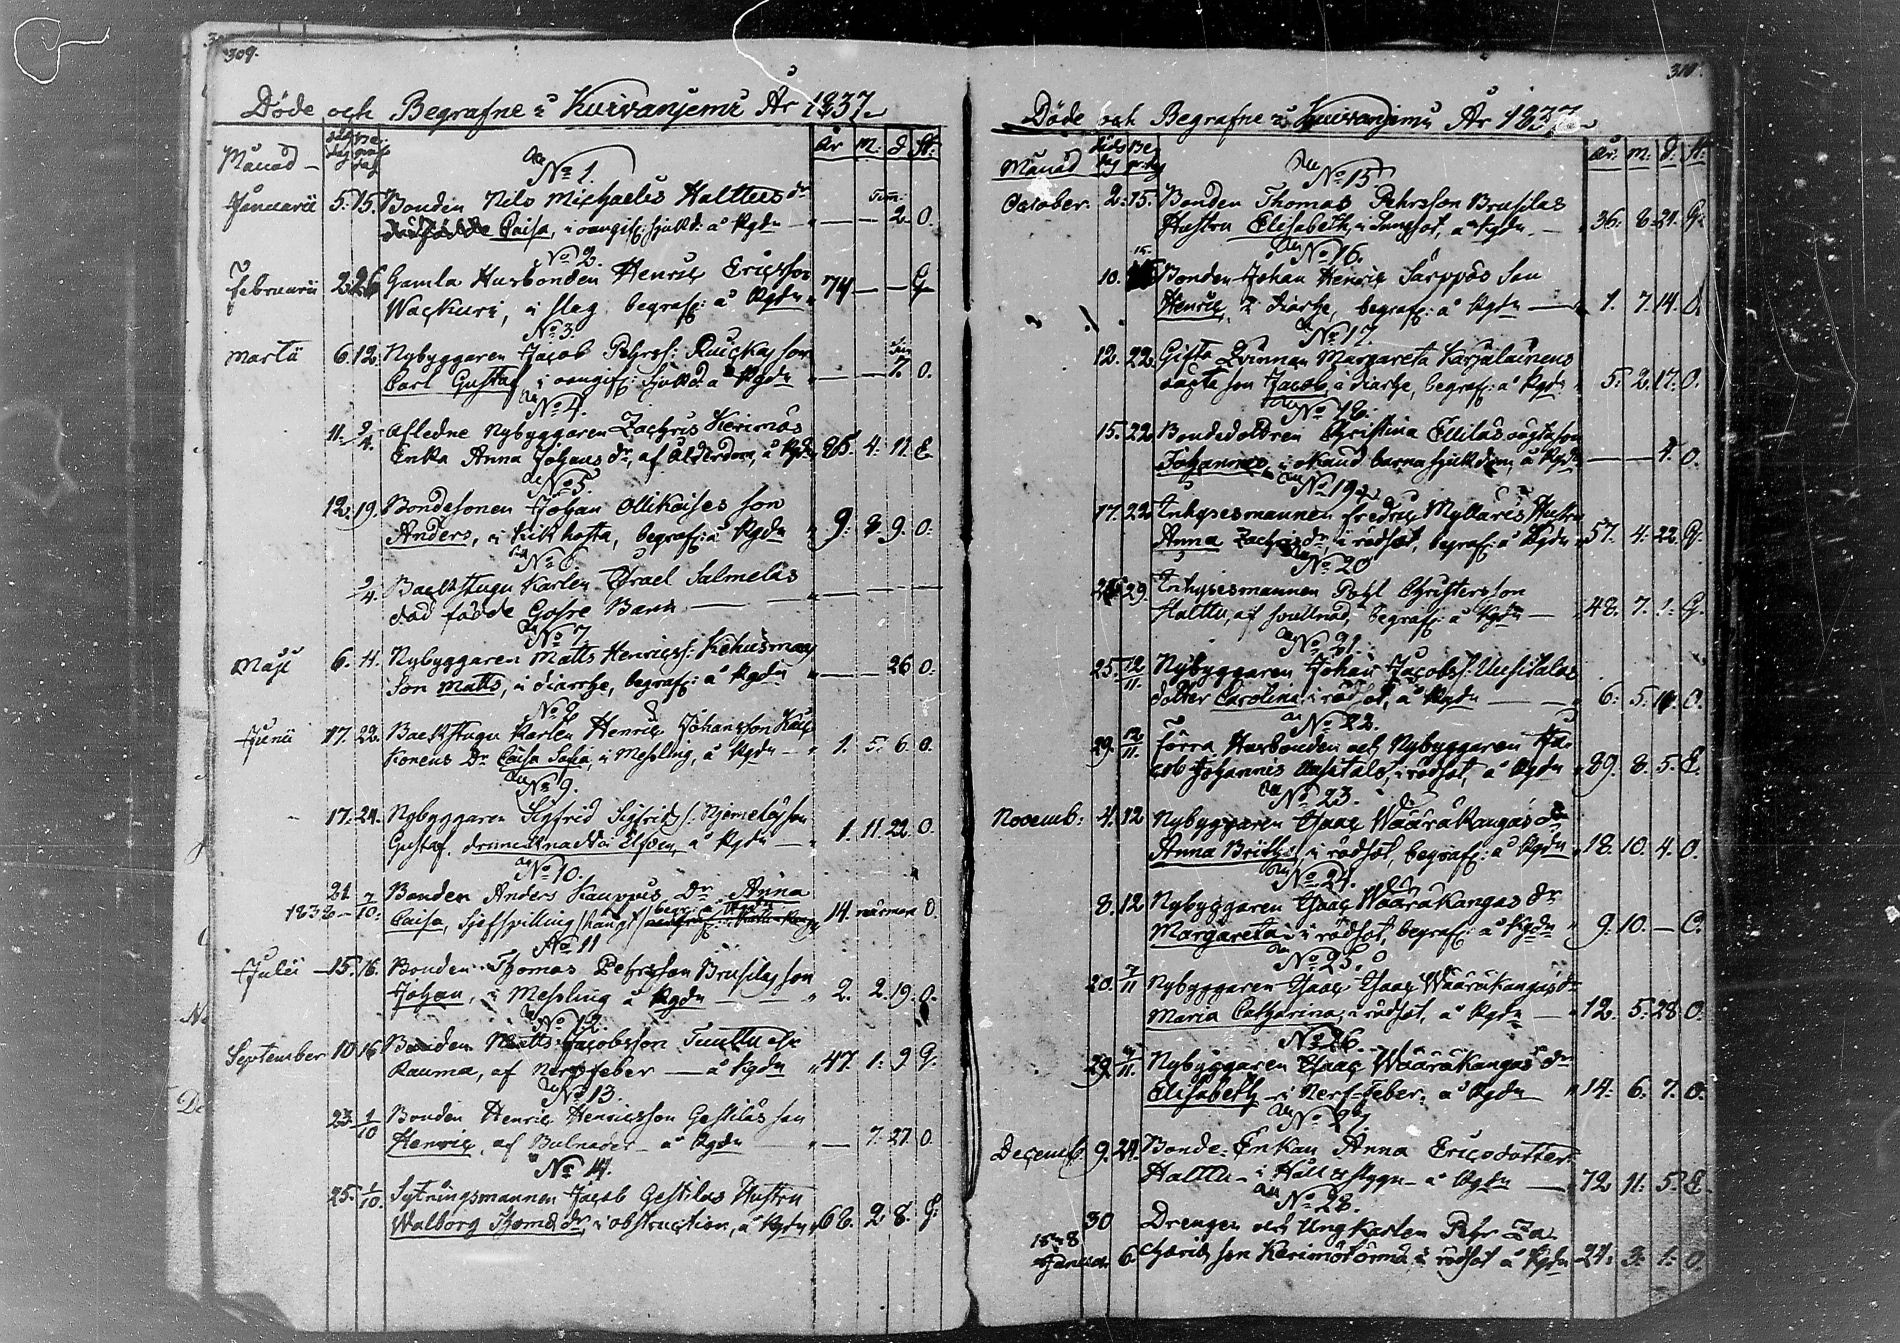 309.
Döde och Begrafne i Kuivaniemi År 1837
Månad
År. M. d. St.
No 1.
Januarii 5. 15. Bonden Nils Michaelis Halttus dr
Caisa, i oangif: sjukd: å Kgdn — — 2. O.
No 2.
Februarii 2 26 Gamla Husbonden Henric Ericsson
Wackuri, i slag, begraf: å Kgdn 74 — — G
No 3.
Martii 6. 12. Nybyggaren Jacob Pehrss: son
Carl Gustaf, i oangif: sjukd. å Kgdn — — 7. O.
No 4.
11. 2/4. Afledne Nybyggaren Zachris Kerimäs
Enka Anna Johans dr, af Ålderdom, å Kgdn 85. 4. 11. E
No 5.
12. 19. Bondesonen Johan Ollikaises son
Anders, i kikhosta, begraf: å Kgdn 9. 8. 9. O.
No 6.
2/4. Backstugu Karlen Israel Salmelas
död födde Gosse Barn — — —
No 7.
Maji 6. 14. Nybyggaren Matts Henricss: Kehusmaa
Son Matts, i diarrhe, begraf: å Kgdn — — 26 O.
No 8
Junii 17. 22. Backstugu Karlen Henric Johansson
Konens Dr Caisa Sofia, i Messling, å Kgdn 1. 5. 6. O.
No 9.
17. 24. Nybyggaren Sigfrid Sigfrids s: Niemelä son
Gustaf, drunknad i Elfven, å Kgdn 1. 11. 22 O.
No 10.
21 Bonden Anders Kauppus Dr Anna
1838 7/10. Caisa, begr. å Kgdn 14. O.
No 11
Julii 15. 16. Bonden Thomas Pehrsson Brusilas son
Johan, i Messling å Kgdn 2. 2. 19. O.
No 12.
September 10 16 Bonden Matts Jacobsson Tuuttu
Rauma, af Nervfeber — å Kgdn 47. 1. 9 G.
No 13.
23. 1/10 Bonden Henric Henricsson Gestilas son
Henric, af Bulnader — å Kgdn — 7. 27. O.
No 14.
25. 1/10. Sytningsmannen Jacob Gestilas Hustru
Walborg Thoms dr, i obstruction, å Kgdn 68. 2. 8. G.
310.
Döde och Begrafne i Kuivaniemi År 1837
Månad
År. M. d. St.
No 15
October. 2. 15. Bonden Thomas Pehrsson Brusilas
Hustru Elisabeth, i Lungsot, å Kgdn. — 36. 8. 21. G.
No 16.
10. 15. Bonden Johan Henric Särppäs Son
Henric, i diarhe, begraf: å Kgdn — 1. 7. 14. O
No 17.
12. 22. Gifta Qvinnan Margareta Karjalainens
oägta son Jacob, i diarhe, begraf: å Kgdn 5. 2. 17. O.
No 18.
15. 22 Bondedottren Christina Ellilas oägta son
Johannes, i okänd barnasjukdom å Kgdn — — 4. O.
No 19.
17. 22 Inhysesmannen Fredric Myllaris Hustru
Anna Zachris dr, i rödsot, begraf: å Kgdn 57. 4. 22. G.
No 20
29. Inhysesmannen Pehl Christersson
Halttu, af svullnad, begraf: å Kgdn — 48. 7. 1. G.
No 21.
25. 12/11. Nybyggaren Johan Jacobss: Uusitalos
dotter Carolina, i rödsot, å Kgdn — 6. 5. O.
No 22.
29. 12/11. Förra Husbonden och Nybyggaren Ja-
cob Johannis Uusitalo, i rödsot, å Kgdn 89. 8. 5. E.
No 23.
Novemb: 4. 12 Nybyggaren Isaac Wääräkangas dr
Anna Brita, i rödsot, begraf: å Kgdn 18. 10. 4. O.
No 24.
8. 12 Nybyggaren Isaac Wäärakangas dr
Margareta i rödsot, begraf: å Kgdn 9. 10. — O.
No 25.
20. Nybyggaren Isaac Isaac Wäärakangas dr
Maria Catharina, i rödsot, å Kgdn — 12. 5. 28. O.
No 26.
29. Nybyggaren Isaac Wäärakangas dr
Elisabeth — i Nerf-feber, å Kgdn 14. 6. 7. O.
No 27.
Decemb: 9. 24. Bonde-Enkan Anna Ericsdotter
Halttu — i Håll o stygn — å Kgdn — 72 11. 5. E.
No 28.
30 Drengen och Ungkarlen Pehr Za-
1838
Januar. 6. charias son i rödsot å Kgdn 21. 3. 1. O.